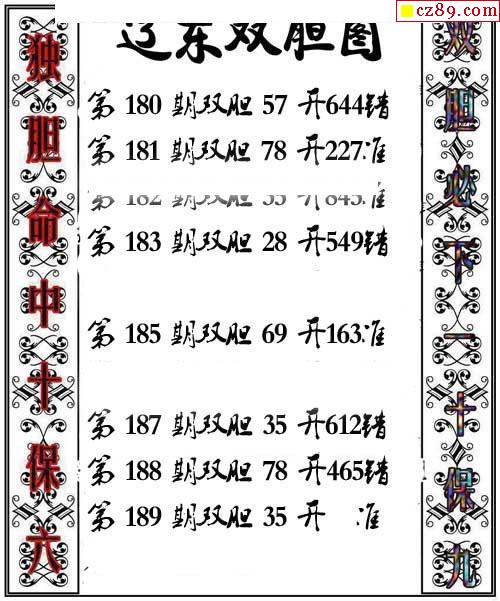 cz89.com
辽东双胆图
独胆命中十保六
第 180 期双胆 57 开644错
第 181 期双胆 78 开227准
第 182 期双胆 开845准
第 183 期双胆 28 开549错
第 185 期双胆 69 开163准
第 187 期双胆 35 开612错
第 188 期双胆 78 开465错
第 189 期双胆 35 开 准
双胆必下一十保九